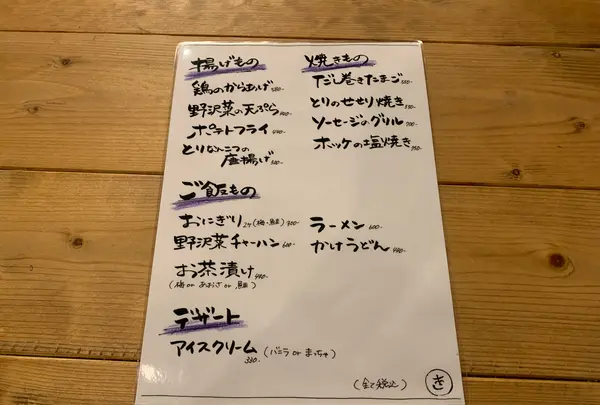 揚げもの
鶏のからあげ
野沢菜の天ぷら
ポテトフライ
とりなんこつの
唐揚げ
焼きもの
だし巻きたまご
とりのせせり焼き
ソーセージのグリル
ホッケの塩焼き
ご飯もの
おにぎり 2ケ(梅・鮭)
野沢菜チャーハン 600-
お茶漬け
(梅 or あおさ or 鮭)
ラーメン 600-
かけうどん
デザート
アイスクリーム (バニラ or まっちゃ)
(全て税込)
き